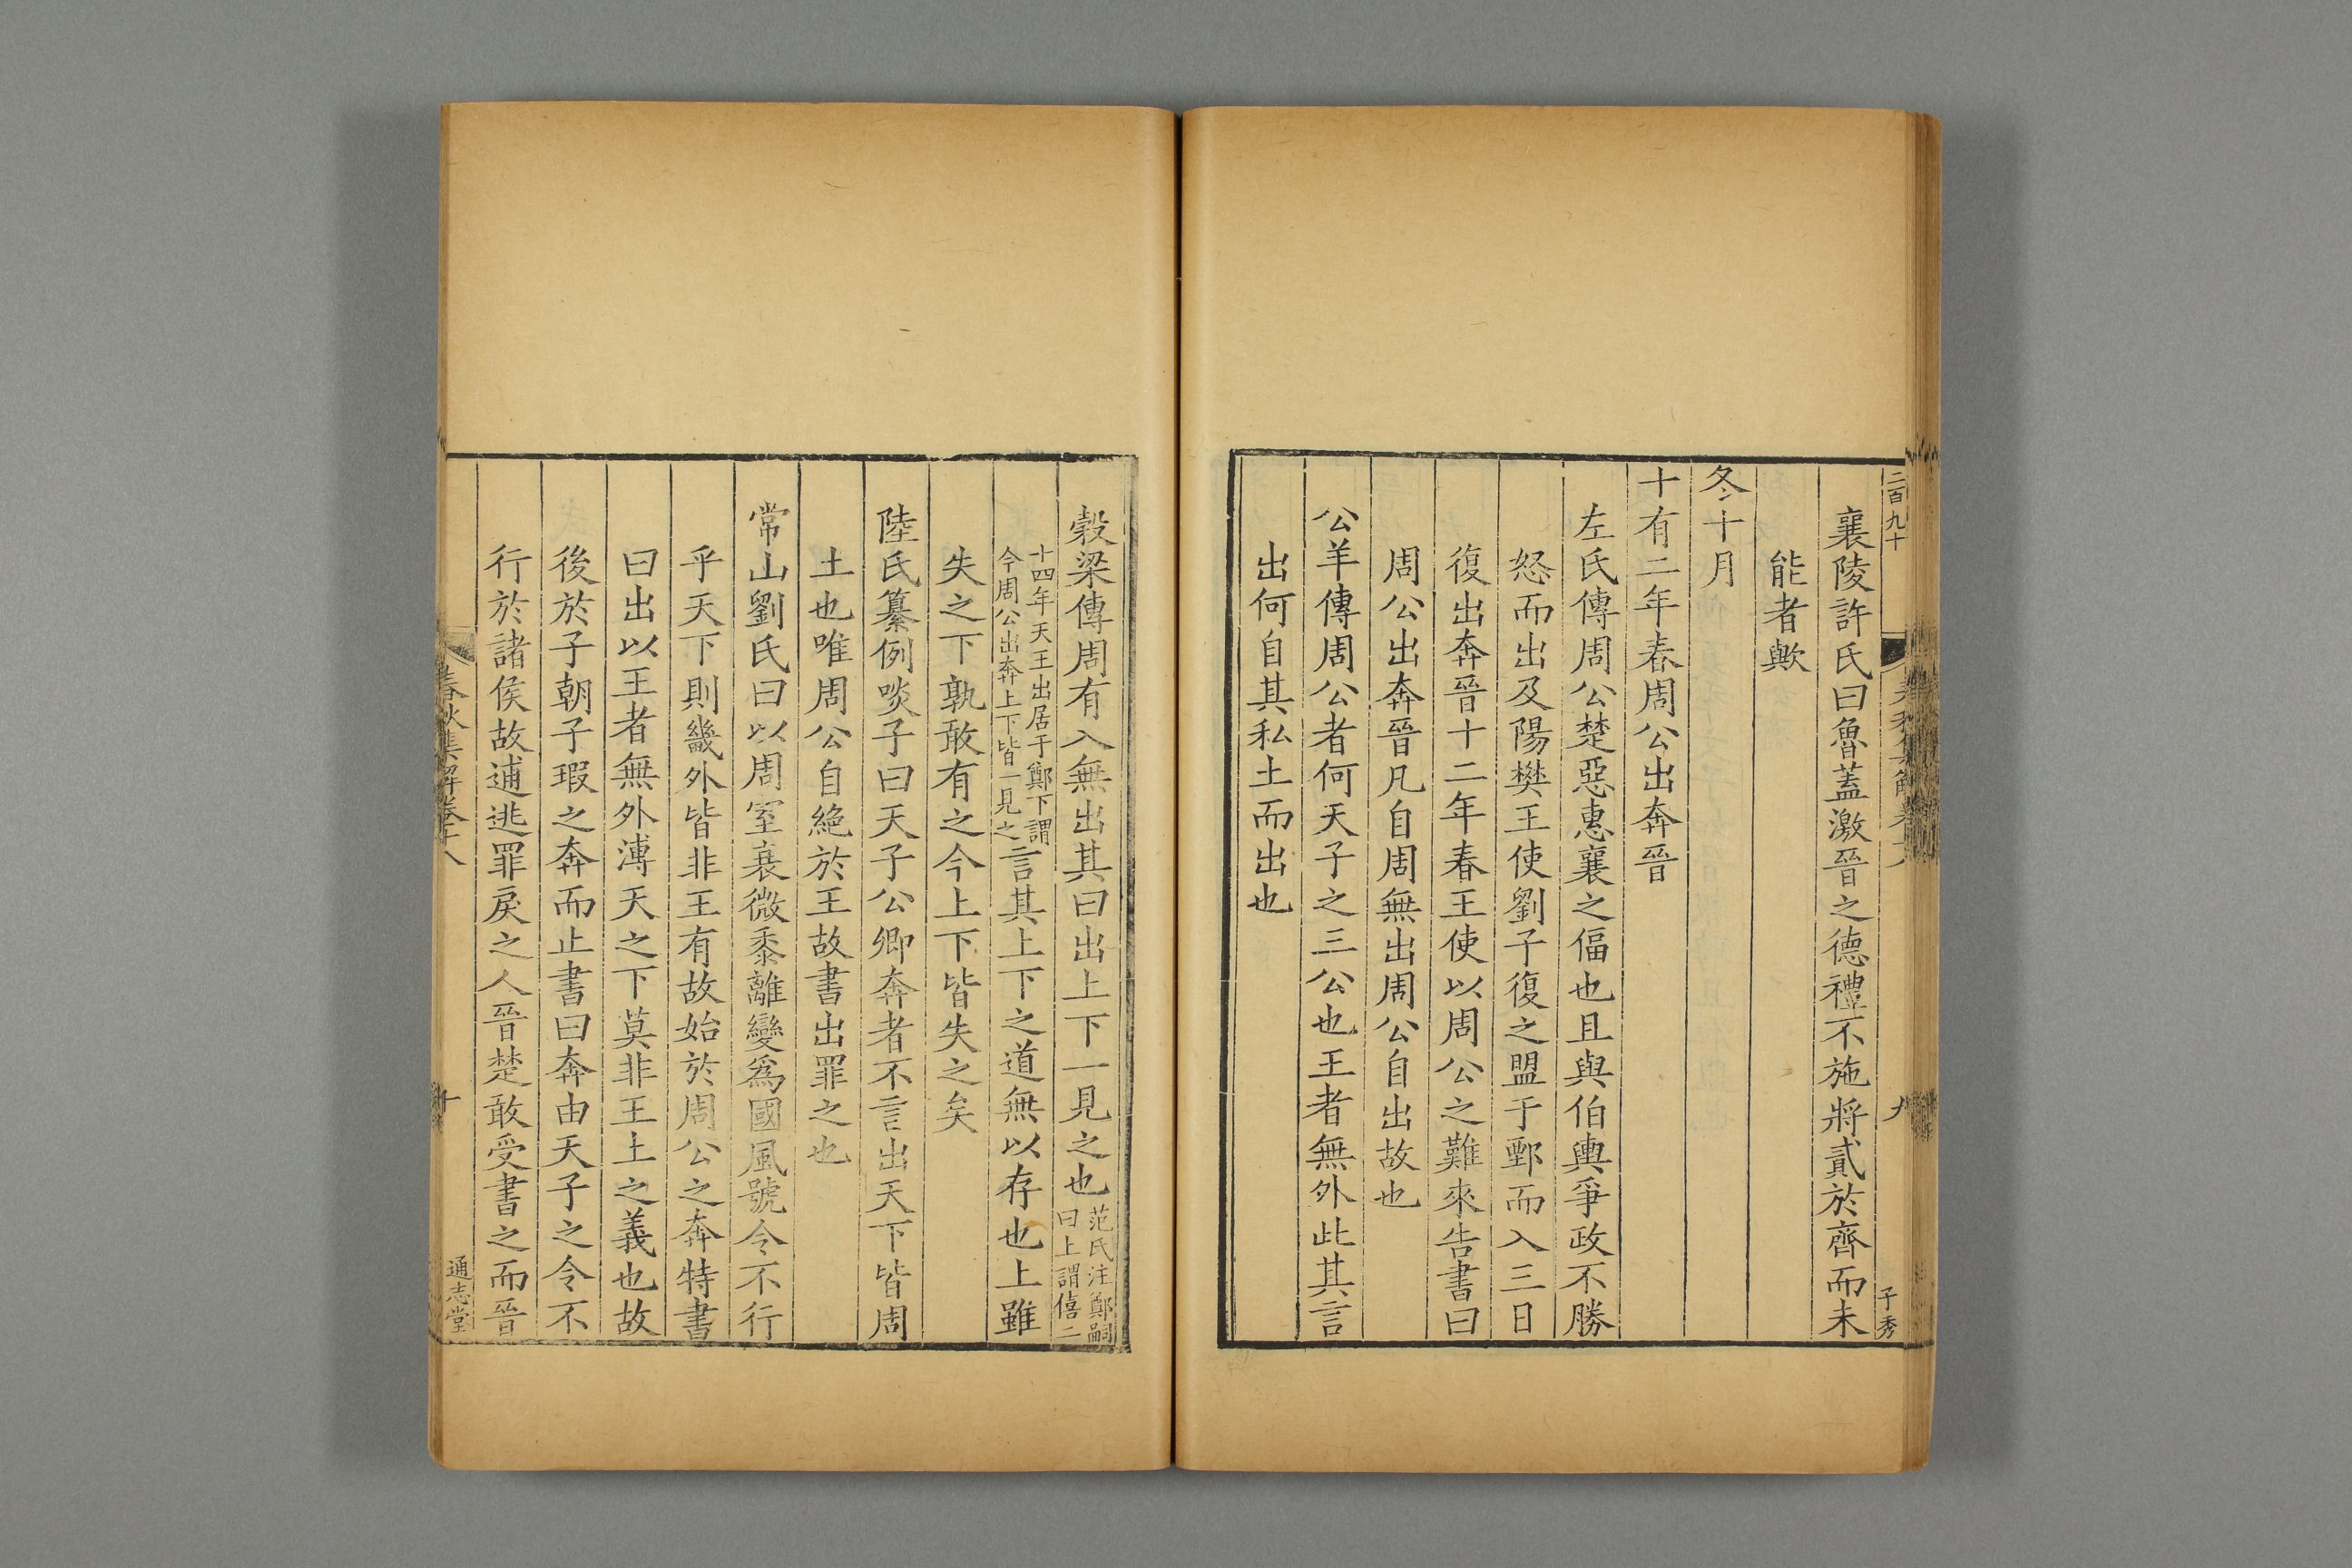 二百九十
子秀
襄陵許氏曰魯蓋激晉之德禮不施將貳於齊而未
能者歟
冬十月
十有二年春周公出奔晉
左氏傳周公楚惡惠襄之偪也且與伯輿爭政不勝
怒而出及陽樊王使劉子復之盟于鄄而入三日
復出奔晉十二年春王使以周公之難來告書曰
周公出奔晉凡自周無出周公自出故也
公羊傳周公者何天子之三公也王者無外此其言
出何自其私土而出也
穀梁傳周有入無出其曰出上下一見之也范氏注鄭嗣曰上謂僖二
十四年天王出居于鄭下謂今周公出奔上下皆一見之言其上下之道無以存也上雖
失之下孰敢有之今上下皆失之矣
陸氏纂例啖子曰天子公卿奔者不言出天下皆周
土也唯周公自絶於王故書出罪之也
常山劉氏曰以周室衰微黍離變爲國風號令不行
乎天下則畿外皆非王有故始於周公之奔特書
曰出以王者無外溥天之下莫非王土之義也故
後於子朝子瑕之奔而止書曰奔由天子之令不
行於諸侯故逋逃罪戾之人晉楚敢受書之而晉
春秋集解卷十八
十
通志堂